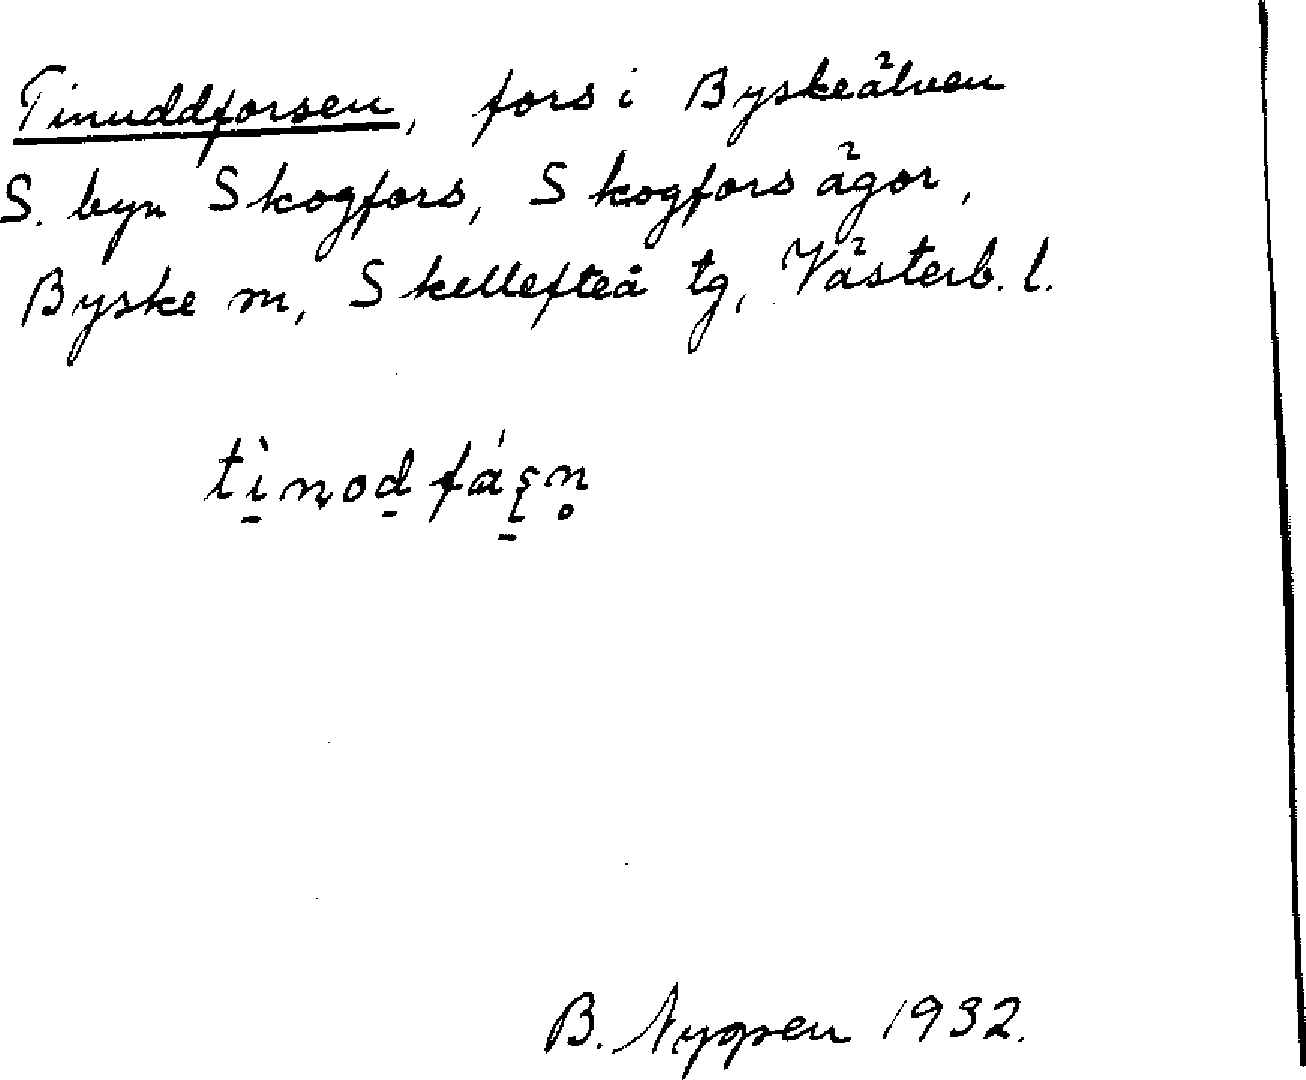 Tinuddforsen, fors i Byskeälven
S. byn Skogfors, Skogfors ägor,
Byske sn, Skellefteå tg, Västerb. l.
tı̠̀nod̠fá̠ʂn̥
B. Nygren 1932.